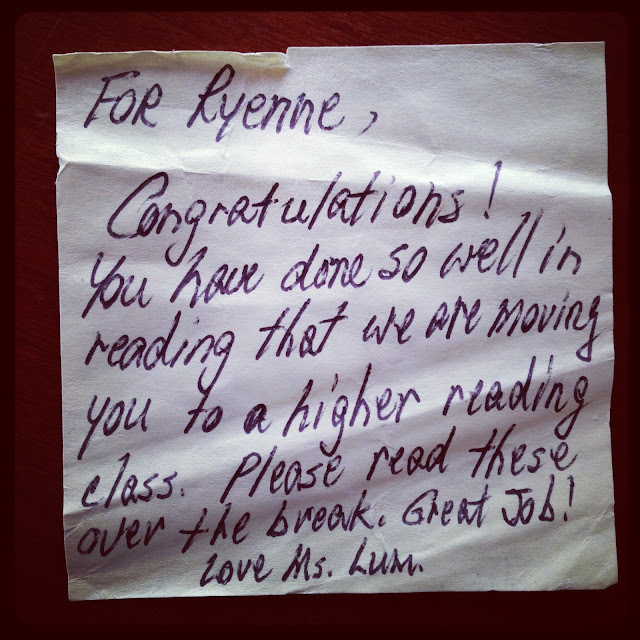 For Ryenne,
Congratulations!
You have done so well in
reading that we are moving
you to a higher reading
class. Please read these
over the break. Great Job!
Love Ms. Lum.